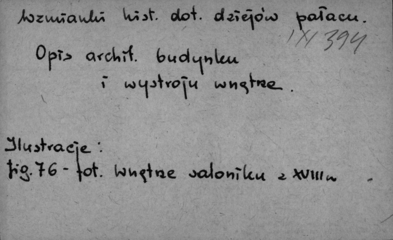 Wzmianki hist. dot. dziejów pałacu.
IX 394
Opis archit. budynku
i wystroju wnętrz.
Ilustracje:
fig. 76 - fot. wnętrz saloniku z XVIII w